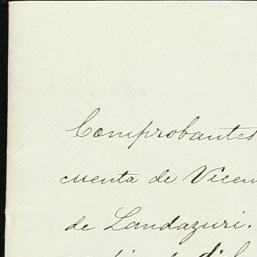 Comprobantes
cuenta de Vicen
de Landazuri.